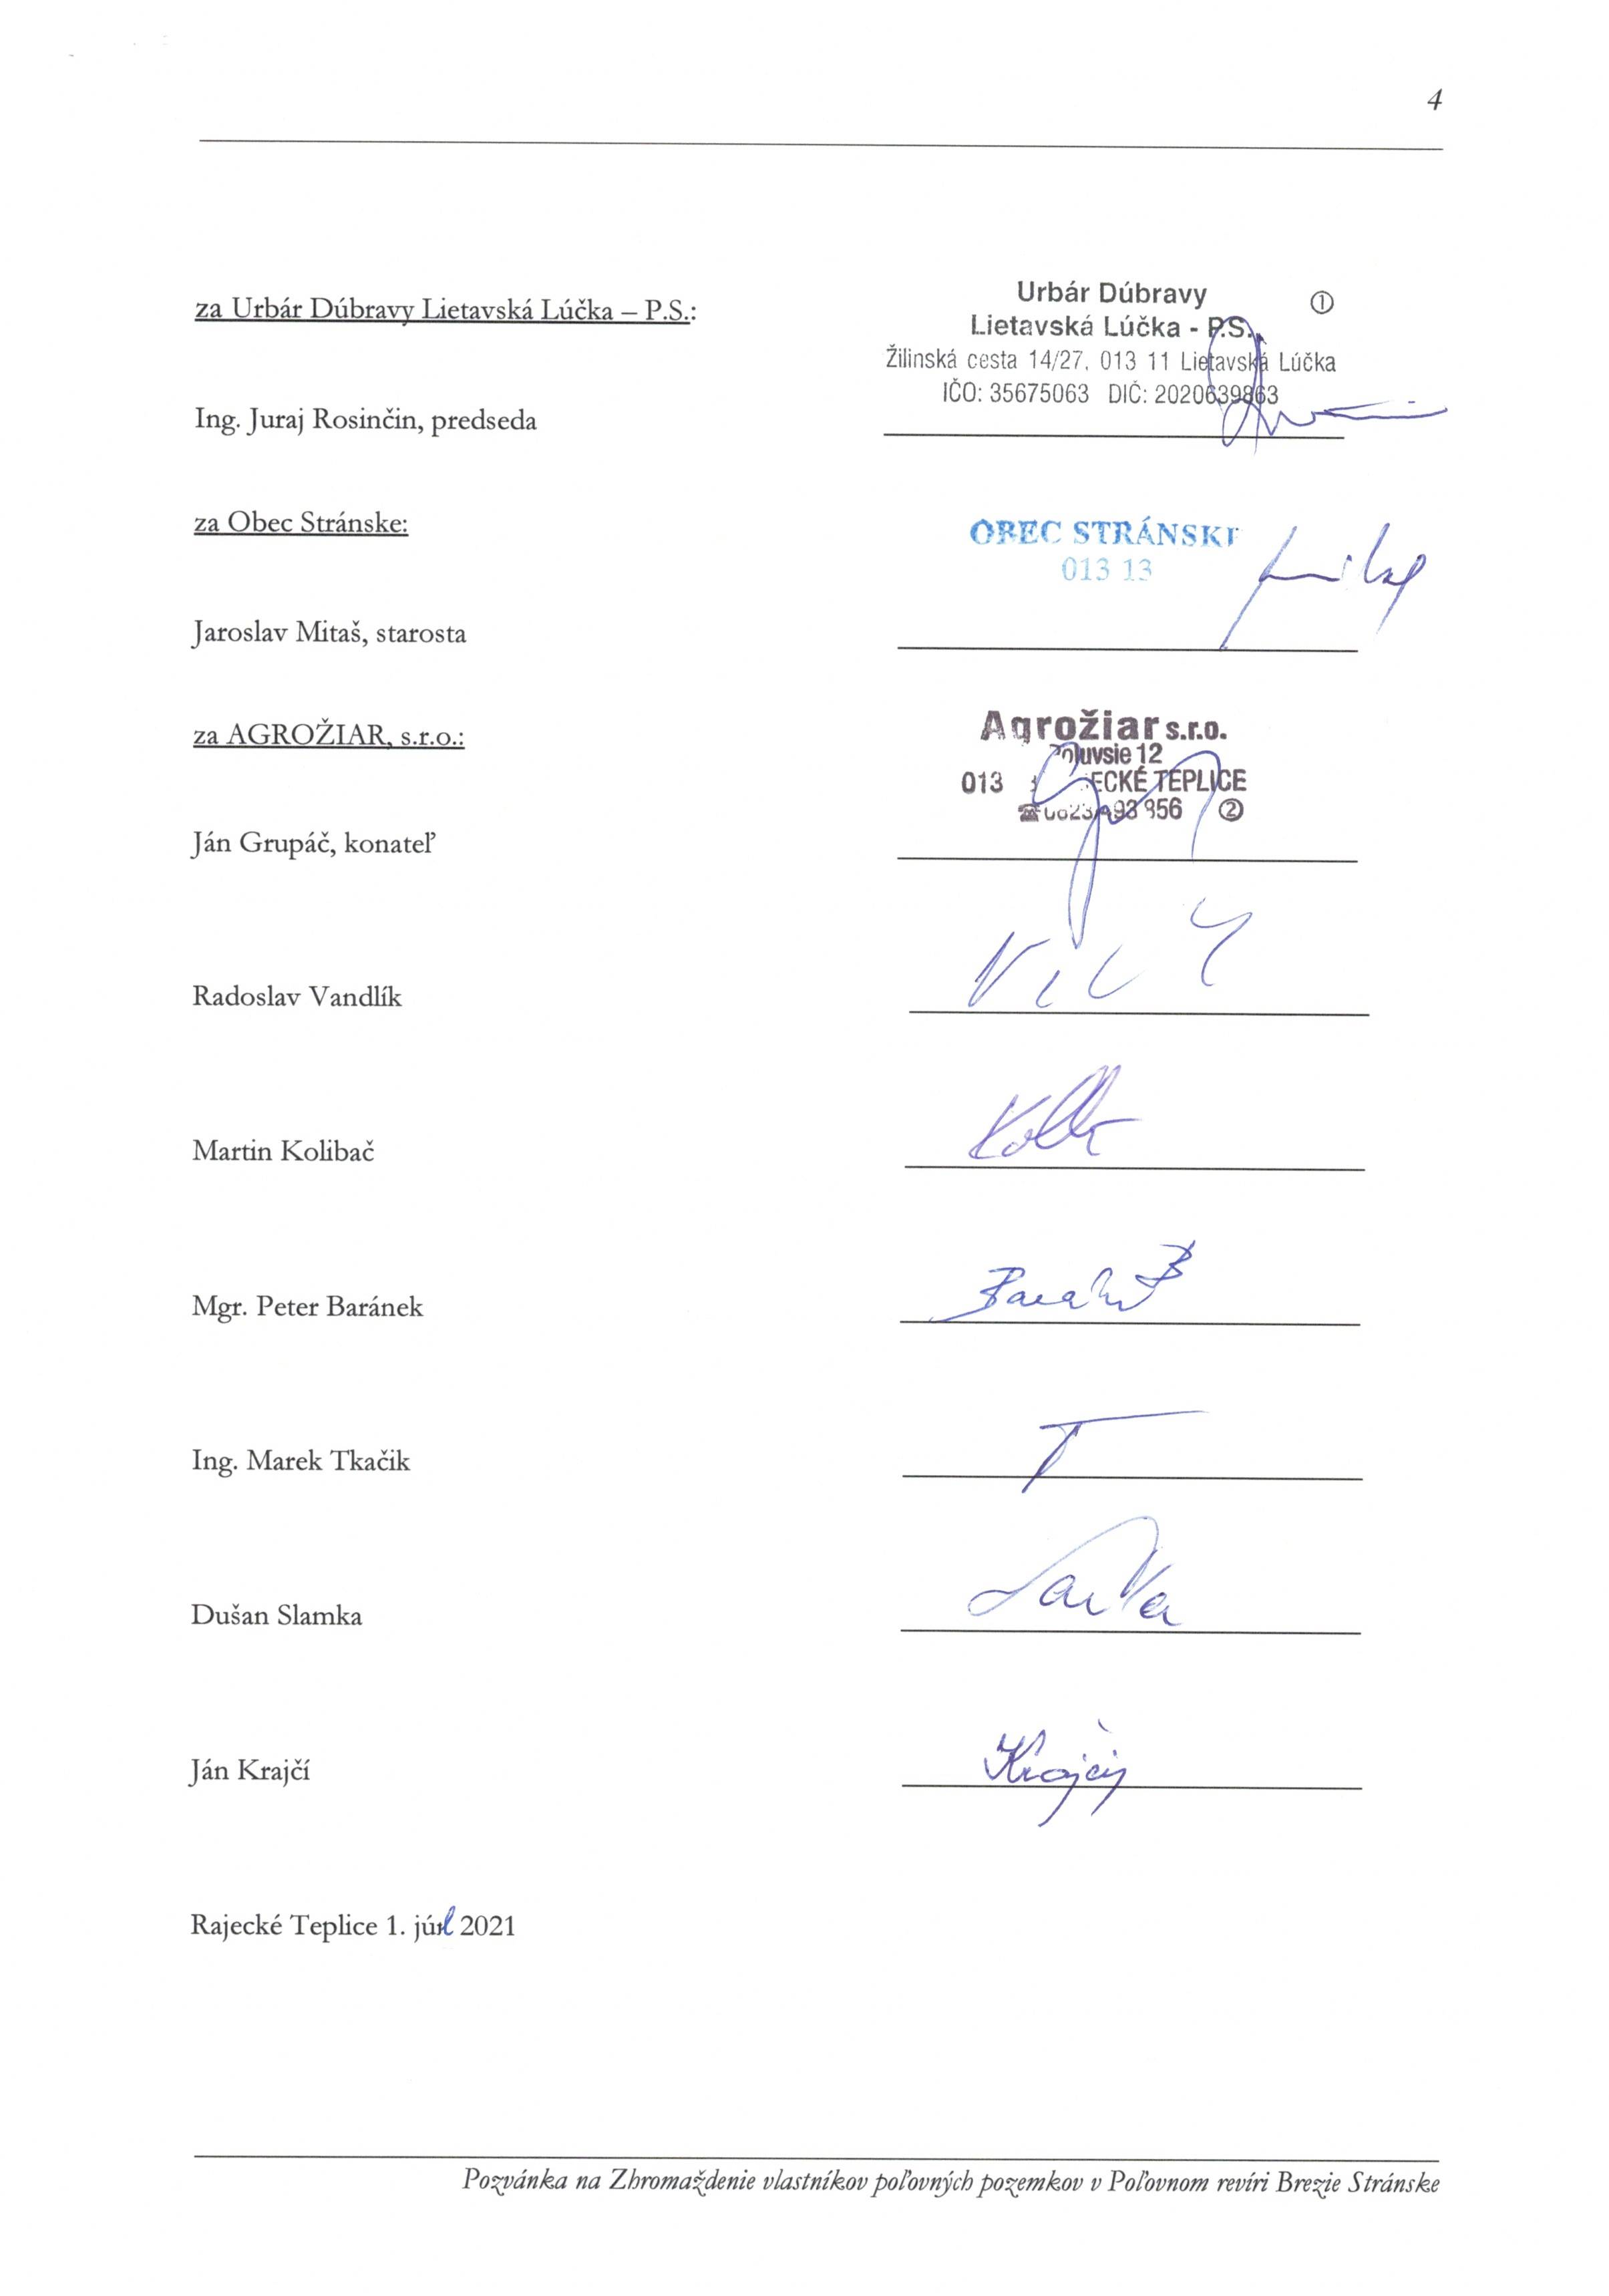 4
za Urbár Dúbravy Lietavská Lúčka – P.S.:
Urbár Dúbravy ①
Lietavská Lúčka - P.S.
Žilinská cesta 14/27, 013 11 Lietavská Lúčka
IČO: 35675063 DIČ: 2020639863
Ing. Juraj Rosinčin, predseda
za Obec Stránske:
OBEC STRÁNSKE
013 13
Jaroslav Mitaš, starosta
za AGROŽIAR, s.r.o.:
Agrožiar s.r.o.
12
013 TEPLICE
②
Ján Grupáč, konateľ
Radoslav Vandlík
Martin Kolibač
Mgr. Peter Baránek
Ing. Marek Tkačik
Dušan Slamka
Ján Krajčí
Krajčí
Rajecké Teplice 1. júl 2021
Pozvánka na Zhromaždenie vlastníkov poľovných pozemkov v Poľovnom revíri Brezie Stránske